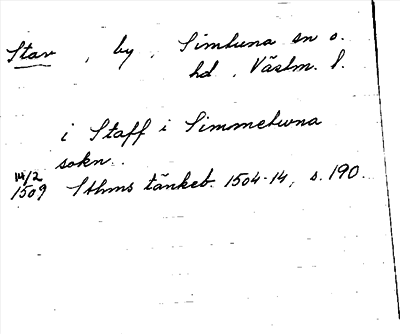 Stav, by, Simtuna sn o.
hd, Västm. l.
i Staff i Simmetuna
sokn..
14/2
1509 Sthms tänkeb. 1504-14, s. 190.